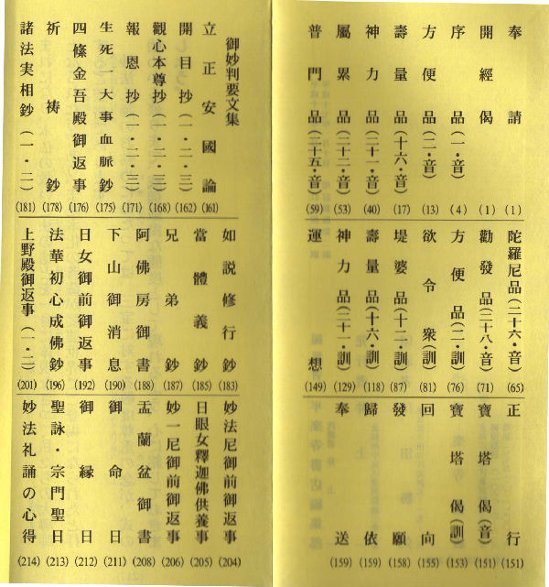 奉請 (1)
開經偈 (1)
序品(一・音) (4)
方便品(二・音) (13)
壽量品(十六・音) (17)
神力品(二十一・音) (40)
屬累品(二十二・音) (53)
普門品(二十五・音) (59)
陀羅尼品(二十六・音) (65)
勸發品(二十八・音) (71)
方便品(二・訓) (76)
欲令衆(訓) (81)
堤婆品(十二・訓) (87)
壽量品(十六・訓) (118)
神力品(二十一・訓) (129)
運想 (149)
正行 (151)
寶塔偈(音) (151)
寶塔偈(訓) (153)
回向 (155)
發願 (158)
歸依 (159)
奉送 (159)
御妙判要文集
立正安國論 (161)
開目抄(一・二・三) (162)
觀心本尊抄(一・二・三) (168)
報恩抄(一・二・三) (171)
生死一大事血脈鈔 (175)
四條金吾殿御返事 (176)
祈祷鈔 (178)
諸法実相鈔(一・二) (181)
如説修行鈔 (183)
當體義鈔 (185)
兄弟鈔 (187)
阿佛房御書 (188)
下山御消息 (190)
日女御前御返事 (192)
法華初心成佛鈔 (196)
上野殿御返事(一・二) (201)
妙法尼御前御返事 (204)
日眼女釋迦佛供養事 (205)
妙一尼御前御返事 (206)
盂蘭盆御書 (208)
御命日 (211)
御縁日 (212)
聖詠・宗門聖日 (213)
妙法礼誦の心得 (214)